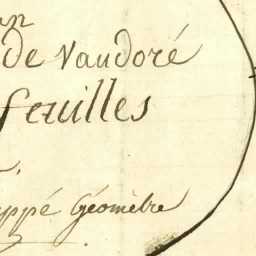 de Vaudoré
feuilles
Géomètre